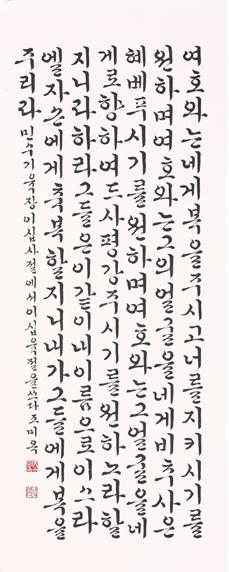 여호와는네게복을주시고너를지키시기를
원하며여호와는그의얼굴을네게비추사은
혜베푸시기를원하며여호와는그얼굴을네
게로향하여드사평강주시기를원하노라할
지니라하라그들은이같이내이름으로이스라
엘자손에게축복할지니내가그들에게복을
주리라 민수기육장이십사절에서이십육절을쓰다 조미옥